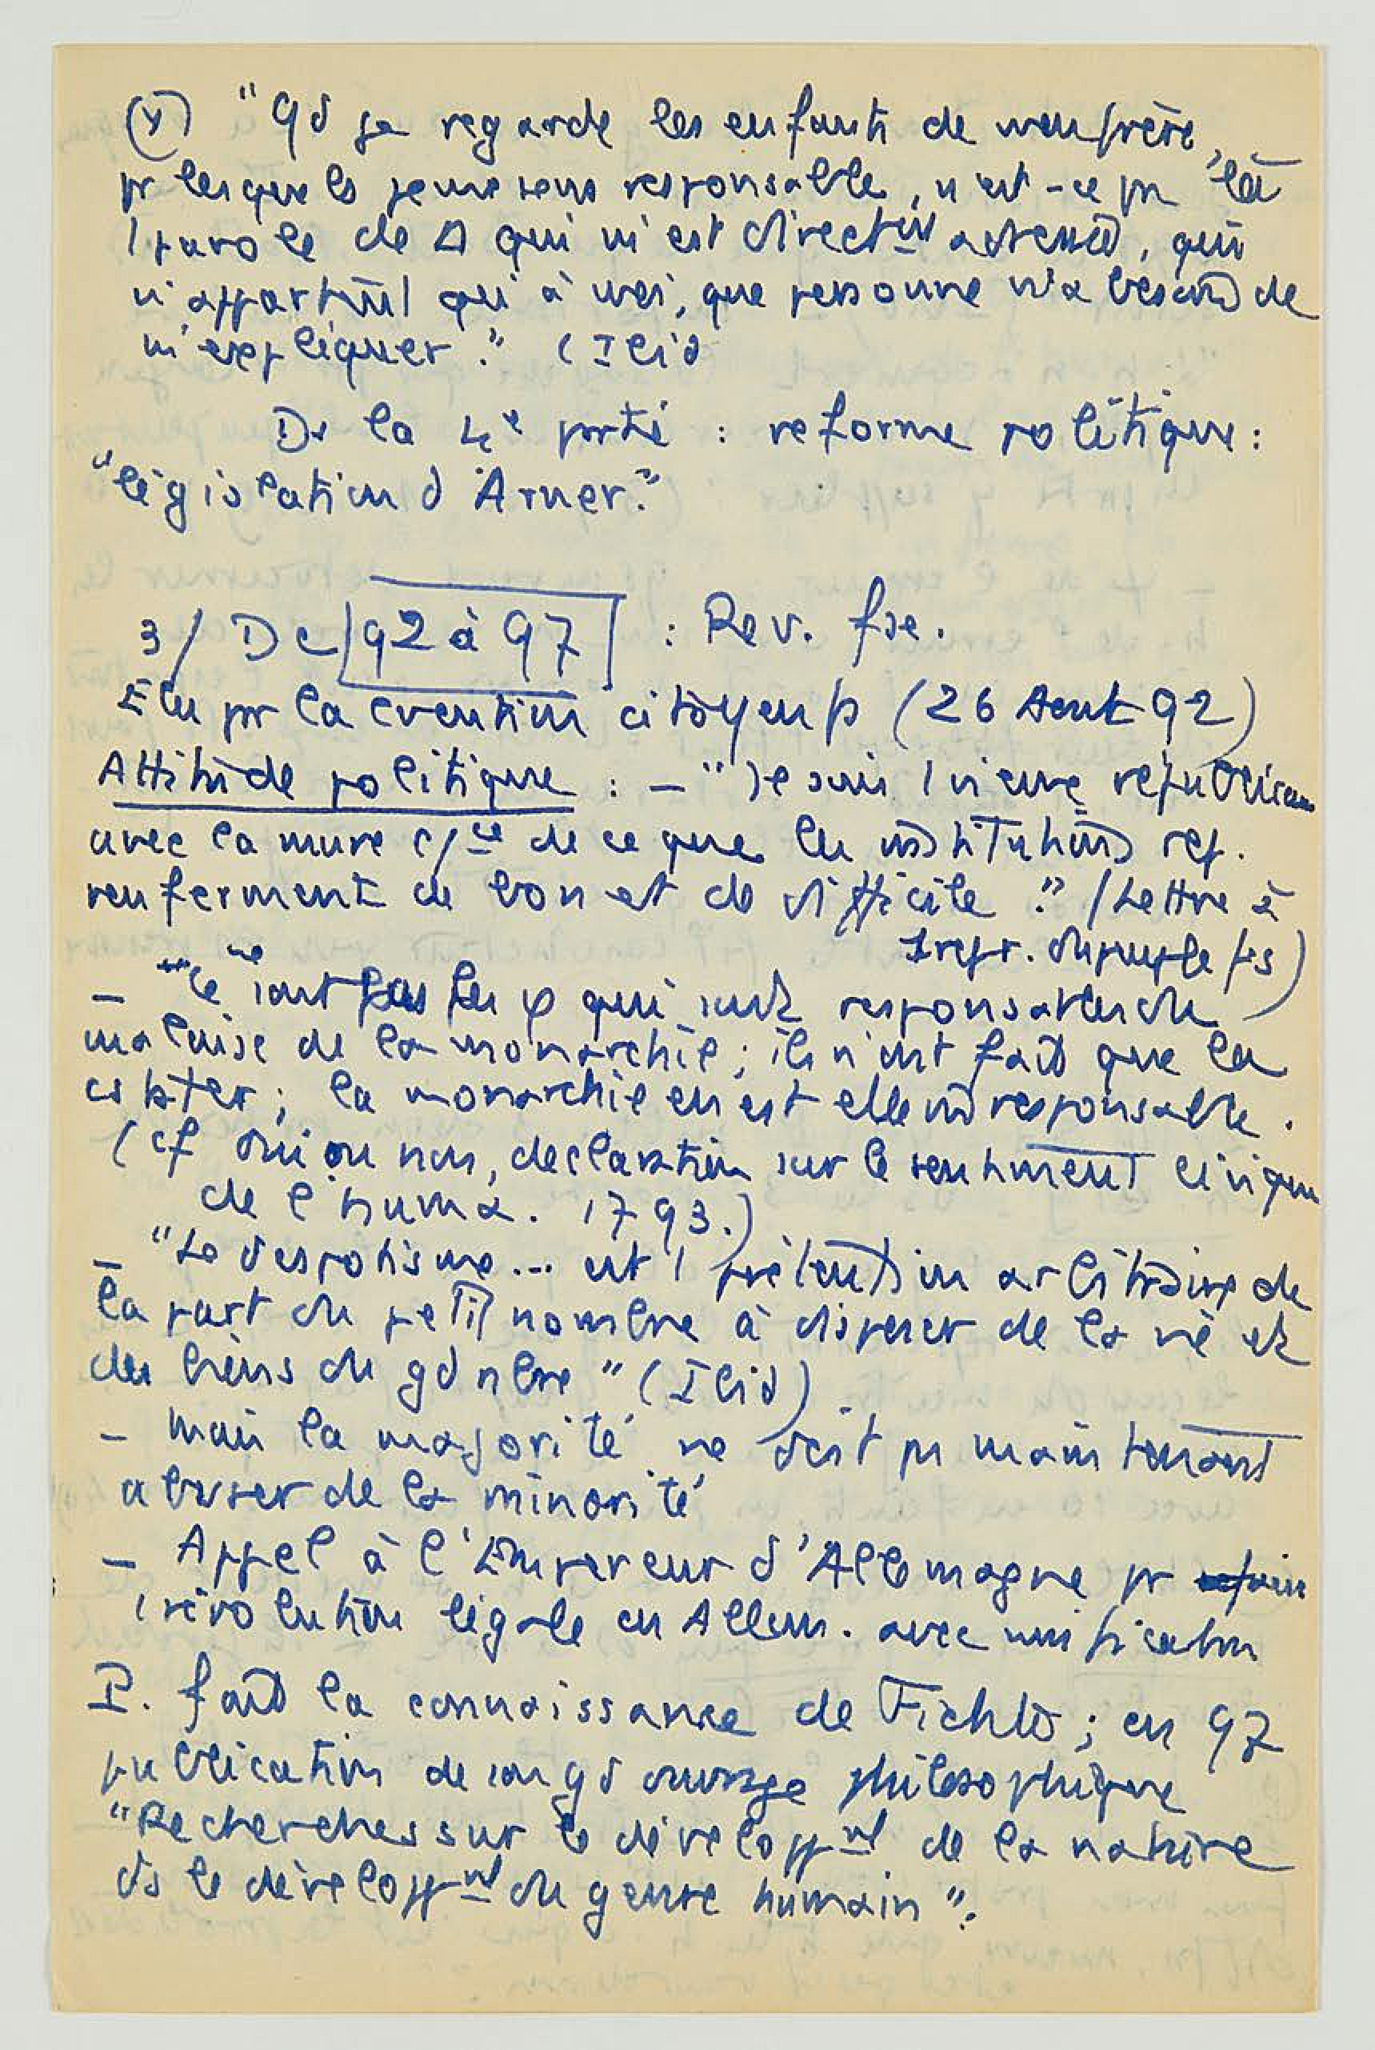 (x) "Qd je regarde les enfants de mon frère,
pr lesquels je me sens responsable, n'est-ce pas là
1 parole de Δ qui m'est directmt adressée, qui
n'appartient qu'à moi, que personne n'a besoin de
m'expliquer." (Ibid
Ds la 4e partie : reforme politique :
"législation d'Arner."
3/ De 92 à 97 : Rev. fse.
Elu par la convention citoyen fs (26 Aout 92)
Attitude politique : - "Je suis 1 vieux républicain
avec la mure c/ce de ce que les institutions rep.
renferment de bon et de difficile." (Lettre à
1 repr. du peuple fs)
- "Ce ne sont pas les φ qui sont responsables du
malaise de la monarchie ; ils n'ont fait que la
cster ; la monarchie en est elle m responsable.
(cf Oui ou non, declaration sur le sentiment civique
de l'huma. 1793.)
- "Le despotisme... est 1 prétention arbitraire de
la part du petit nombre à disposer de la vie et
des biens du gd nbre" (Ibid)
- Mais la majorité ne doit pas maintenant
abuser de la minorité
- Appel à l'Empereur d'Allemagne pr
1 révolution légale en Allem. avec unification
P. fait la connaissance de Fichte ; en 97
publication de son gd ouvrage philosophique
"Recherches sur le développmt de la nature
ds le développmt du genre humain".